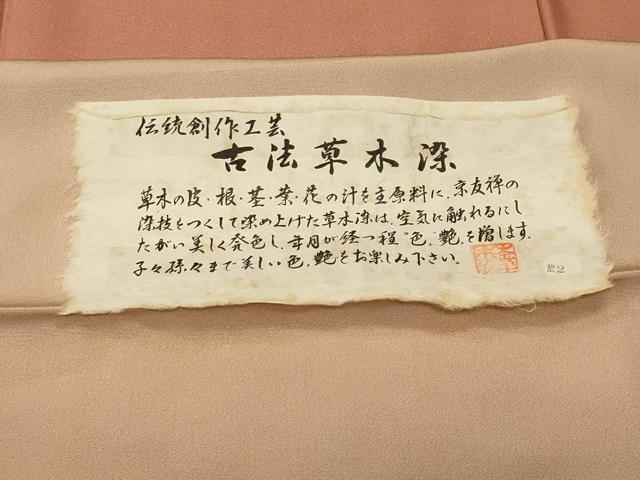 伝統創作工芸
古法草木染
草木の皮・根・茎・葉・花の汁を主原料に、京友禅の
染技をつくして染め上げた草木染は、空気に触れるにし
たがい美しく発色し、年月が経つ程“色、艶、を増します。
子々孫々まで美しい色、艶をお楽しみ下さい。